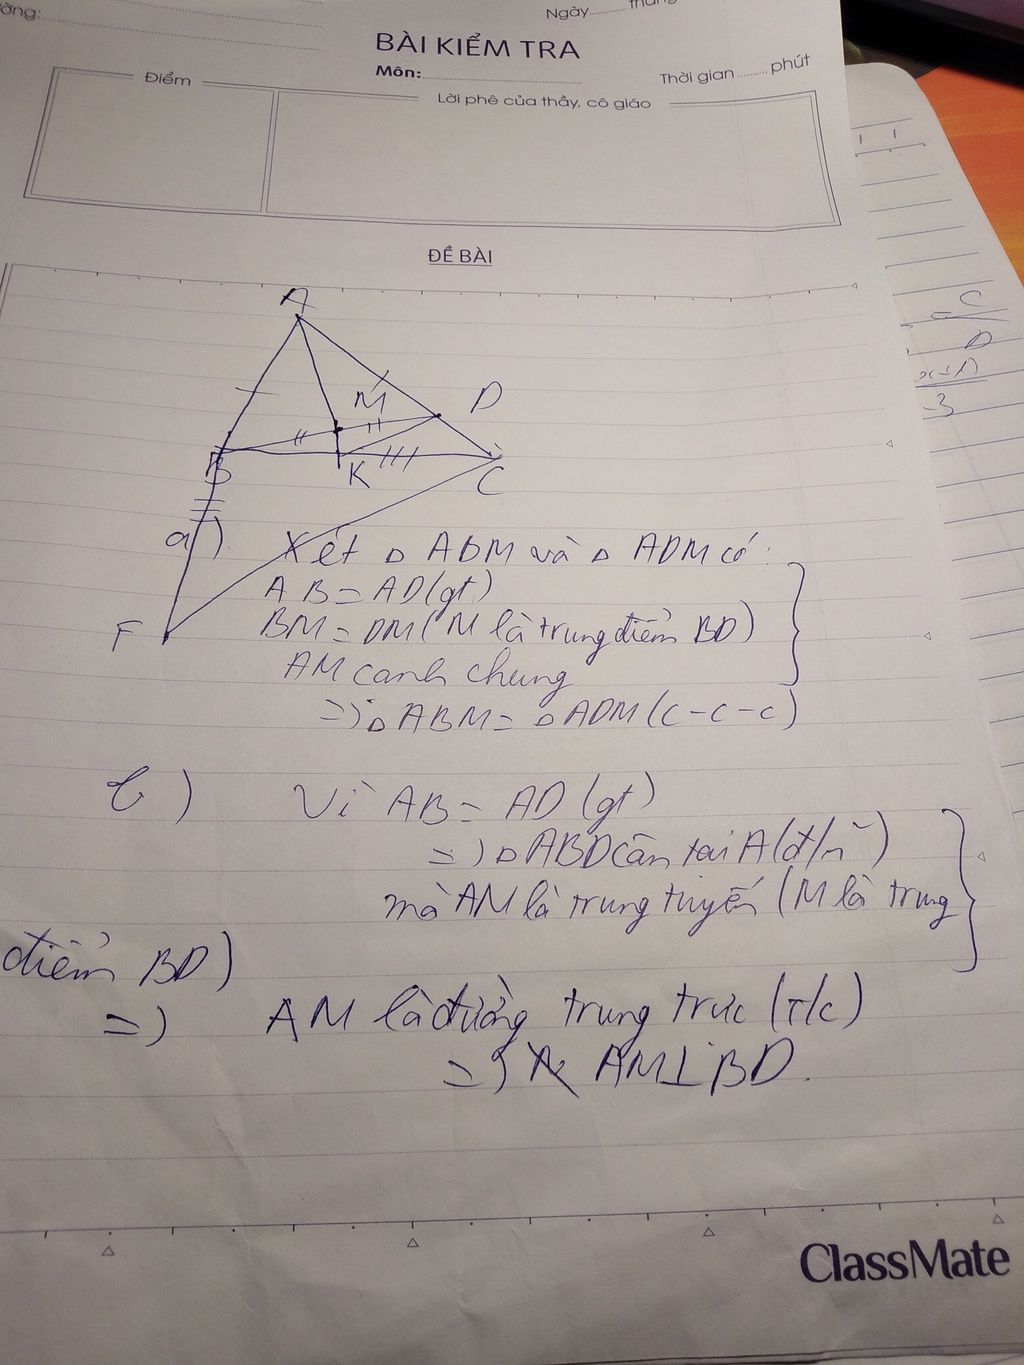 ường:
Ngày
tháng
BÀI KIỂM TRA
Môn:
Thời gian
phút
Điểm
Lời phê của thầy, cô giáo
ĐỀ BÀI
A
M
D
B
K
C
F
a) Xét △ ABM và △ ADM có:
AB = AD (gt)
BM = DM (M là trung điểm BD)
AM cạnh chung
=> △ ABM = △ ADM (c-c-c)
b) Vì AB = AD (gt)
=> △ ABD cân tại A (đ/n)
mà AM là trung tuyến (M là trung
điểm BD)
=> AM là đường trung trực (T/c)
=> AM ⊥ BD.
ClassMate